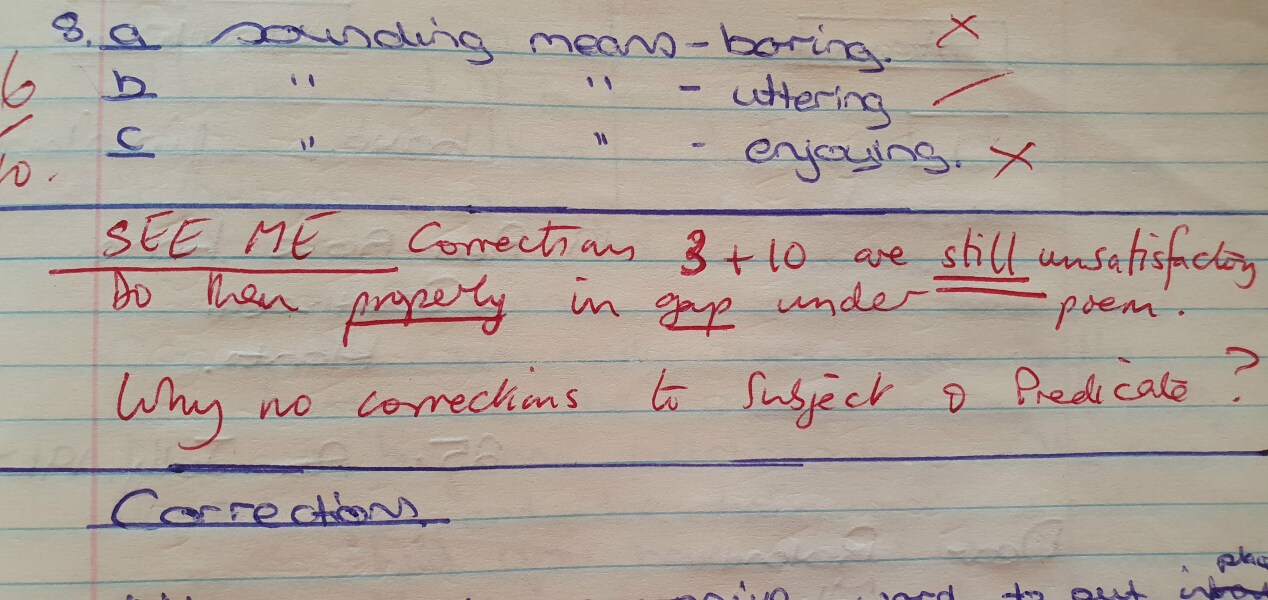 8. a sounding means - boring. ×
6 b " " - uttering /
10. c " " - enjoying. ×
SEE ME Corrections 3 + 10 are still unsatisfactory
Do them properly in gap under poem.
Why no corrections to Subject & Predicate ?
Corrections
to put